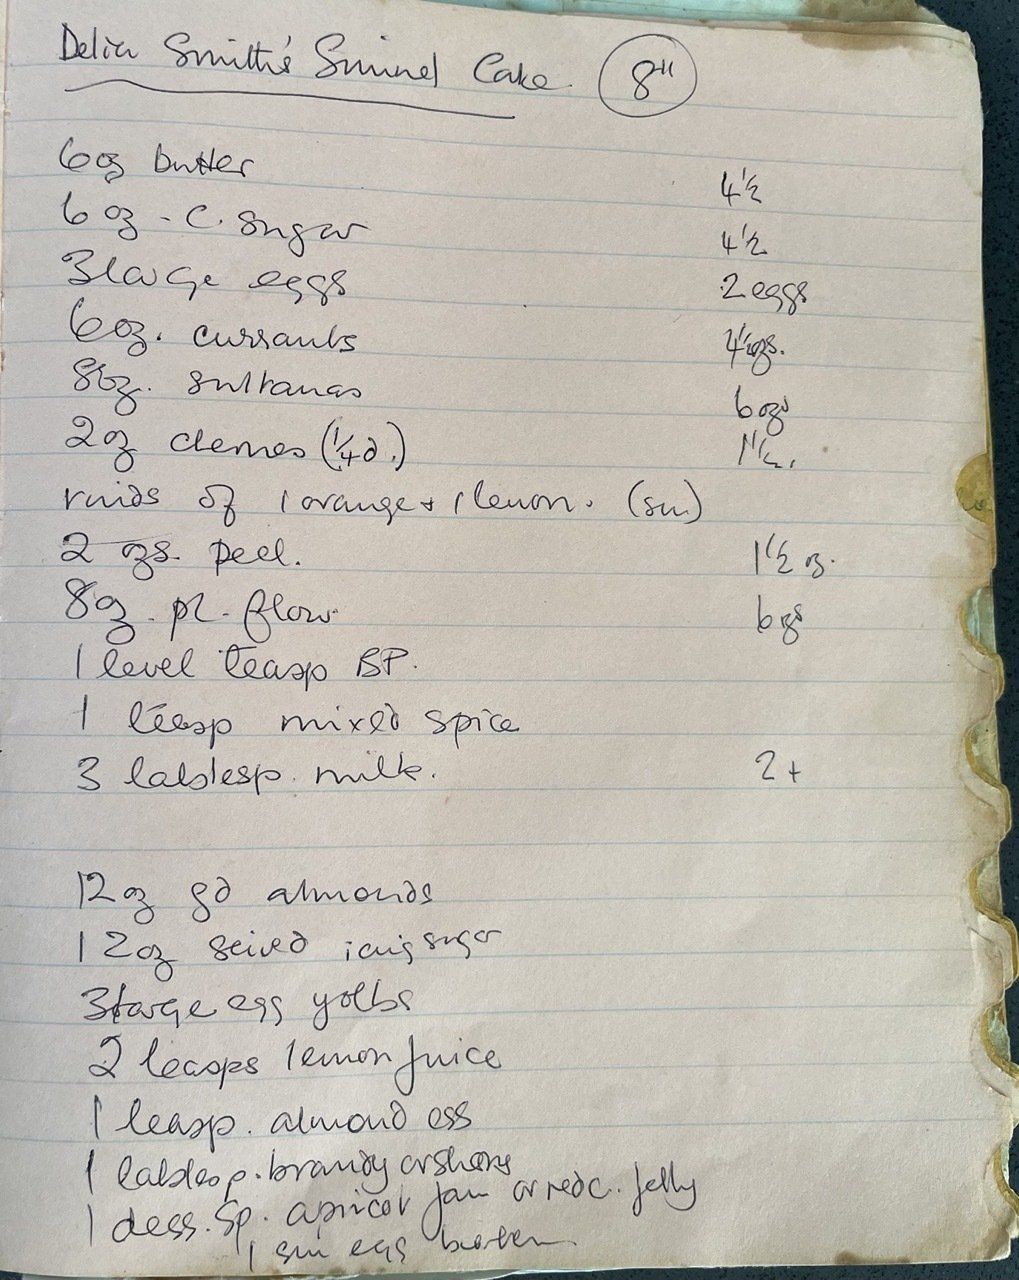 Delia Smith's Simnel Cake 8"
6oz butter 4½
6 oz - C. Sugar 4½
3 large eggs 2 eggs
6oz. currants 4½ozs.
8oz. sultanas 6 ozs
2oz cherries (¼d.) 1½.
rinds of 1 orange + 1 lemon. (sm)
2 ozs. peel. 1½ oz.
8oz. pl. flour 6 ozs
1 level teasp BP.
1 teasp mixed spice
3 tablesp. milk. 2 +
12oz gd almonds
12oz seived icing sugar
3 large egg yolks
2 teasps lemon juice
1 teasp. almond ess
1 tablesp. brandy or sherry
1 dess. Sp. apricot jam or red c. jelly
1 sm egg beaten